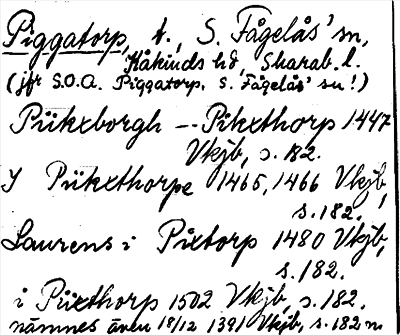 Piggatorp, t., S. Fågelås' sn,
Kåkinds hd, Skarab. l.
(jfr S.O.A. Piggatorp, S. Fågelås' sn!)
Pükxborgh -- Pikxthorp 1447
Vkjb, s. 182.
I Pükxthorpe 1465, 1466 Vkjb,
s. 182.
Laurens i Pixtorp 1480 Vkjb,
s. 182.
i Püxthorp 1502 Vkjb, s. 182.
nämnes även 18/12 1391 Vkjb, s. 182 m